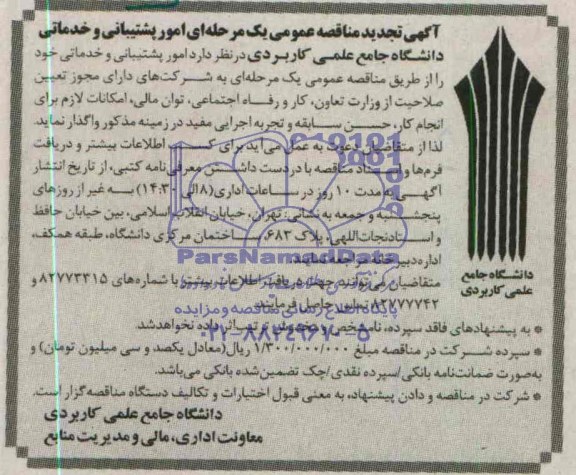 آگهی تجدید مناقصه عمومی یک مرحله‌ای امور پشتیبانی و خدماتی
دانشگاه جامع علمـی کاربـردی در نظر دارد امور پشتیبانی و خدماتی خود
را از طریق مناقصه عمومی یک مرحله‌ای به شرکت‌های دارای مجوز تعیین
صلاحیت از وزارت تعاون، کار و رفـاه اجتماعی، توان مالی، امکانات لازم برای
انجام کار، حسـن سـابقه و تجربه اجرایی مفید در زمینه مذکور واگذار نماید.
لذا از متقاضیان دعوت به عمل می آید برای کسب اطلاعات بیشتر و دریافت
فرم‌ها و اسناد مناقصه با در دست داشتن معرفی‌نامه کتبی، از تاریخ انتشار
آگهـی به مدت ۱۰ روز در سـاعات اداری (۸ الی ۱۴:۳۰) بـه غیر از روزهای
پنجشـنبه و جمعه به نشانی: تهران، خیابان انقلاب اسلامی، بین خیابان حافظ
و اسـتاد نجات‌اللهی، پلاک ۶۸۳، سـاختمان مرکزی دانشگاه، طبقه همکف،
اداره دبیرخانه مراجعه نمایند.
متقاضیان می‌توانند جهت دریافت اطلاعات بیشتر با شماره‌های ۸۲۷۷۳۳۱۵ و
۸۲۷۷۷۷۴۲ تماس حاصل فرمایند.
* به پیشنهادهای فاقد سپرده، نامشخص و مخدوش ترتیب اثر داده نخواهد شد.
* سپرده شـرکت در مناقصه مبلغ ۱/۳۰۰/۰۰۰/۰۰۰ ریال (معادل یکصد و سی میلیون تومان) و
به‌صورت ضمانت‌نامه بانکی/سپرده نقدی/چک تضمین شده بانکی می‌باشد.
* شرکت در مناقصه و دادن پیشنهاد، به معنی قبول اختیارات و تکالیف دستگاه مناقصه‌گزار است.
دانشگاه جامع علمی کاربردی
معاونت اداری، مالی و مدیریت منابع
دانشگاه جامع
علمی کاربردی
ParsNamadData
پایگاه اطلاع رسانی مناقصه و مزایده
۰۲۱-۸۸۳۴۹۶۷۰-۵